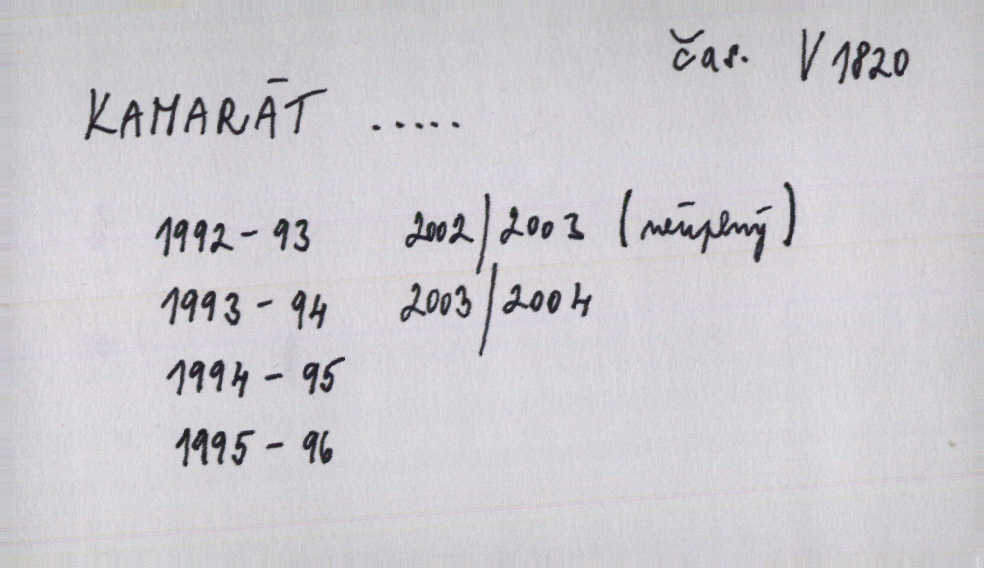 čas. V 1820
KAMARÁT .....
1992 - 93 2002/2003 (neúplný)
1993 - 94 2003/2004
1994 - 95
1995 - 96